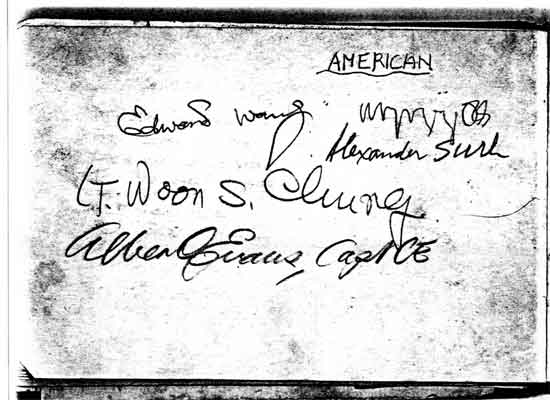 AMERICAN
Edward Wang
Alexander Surh
LT. Woon S. Chung
Albert Evans, Capt CE